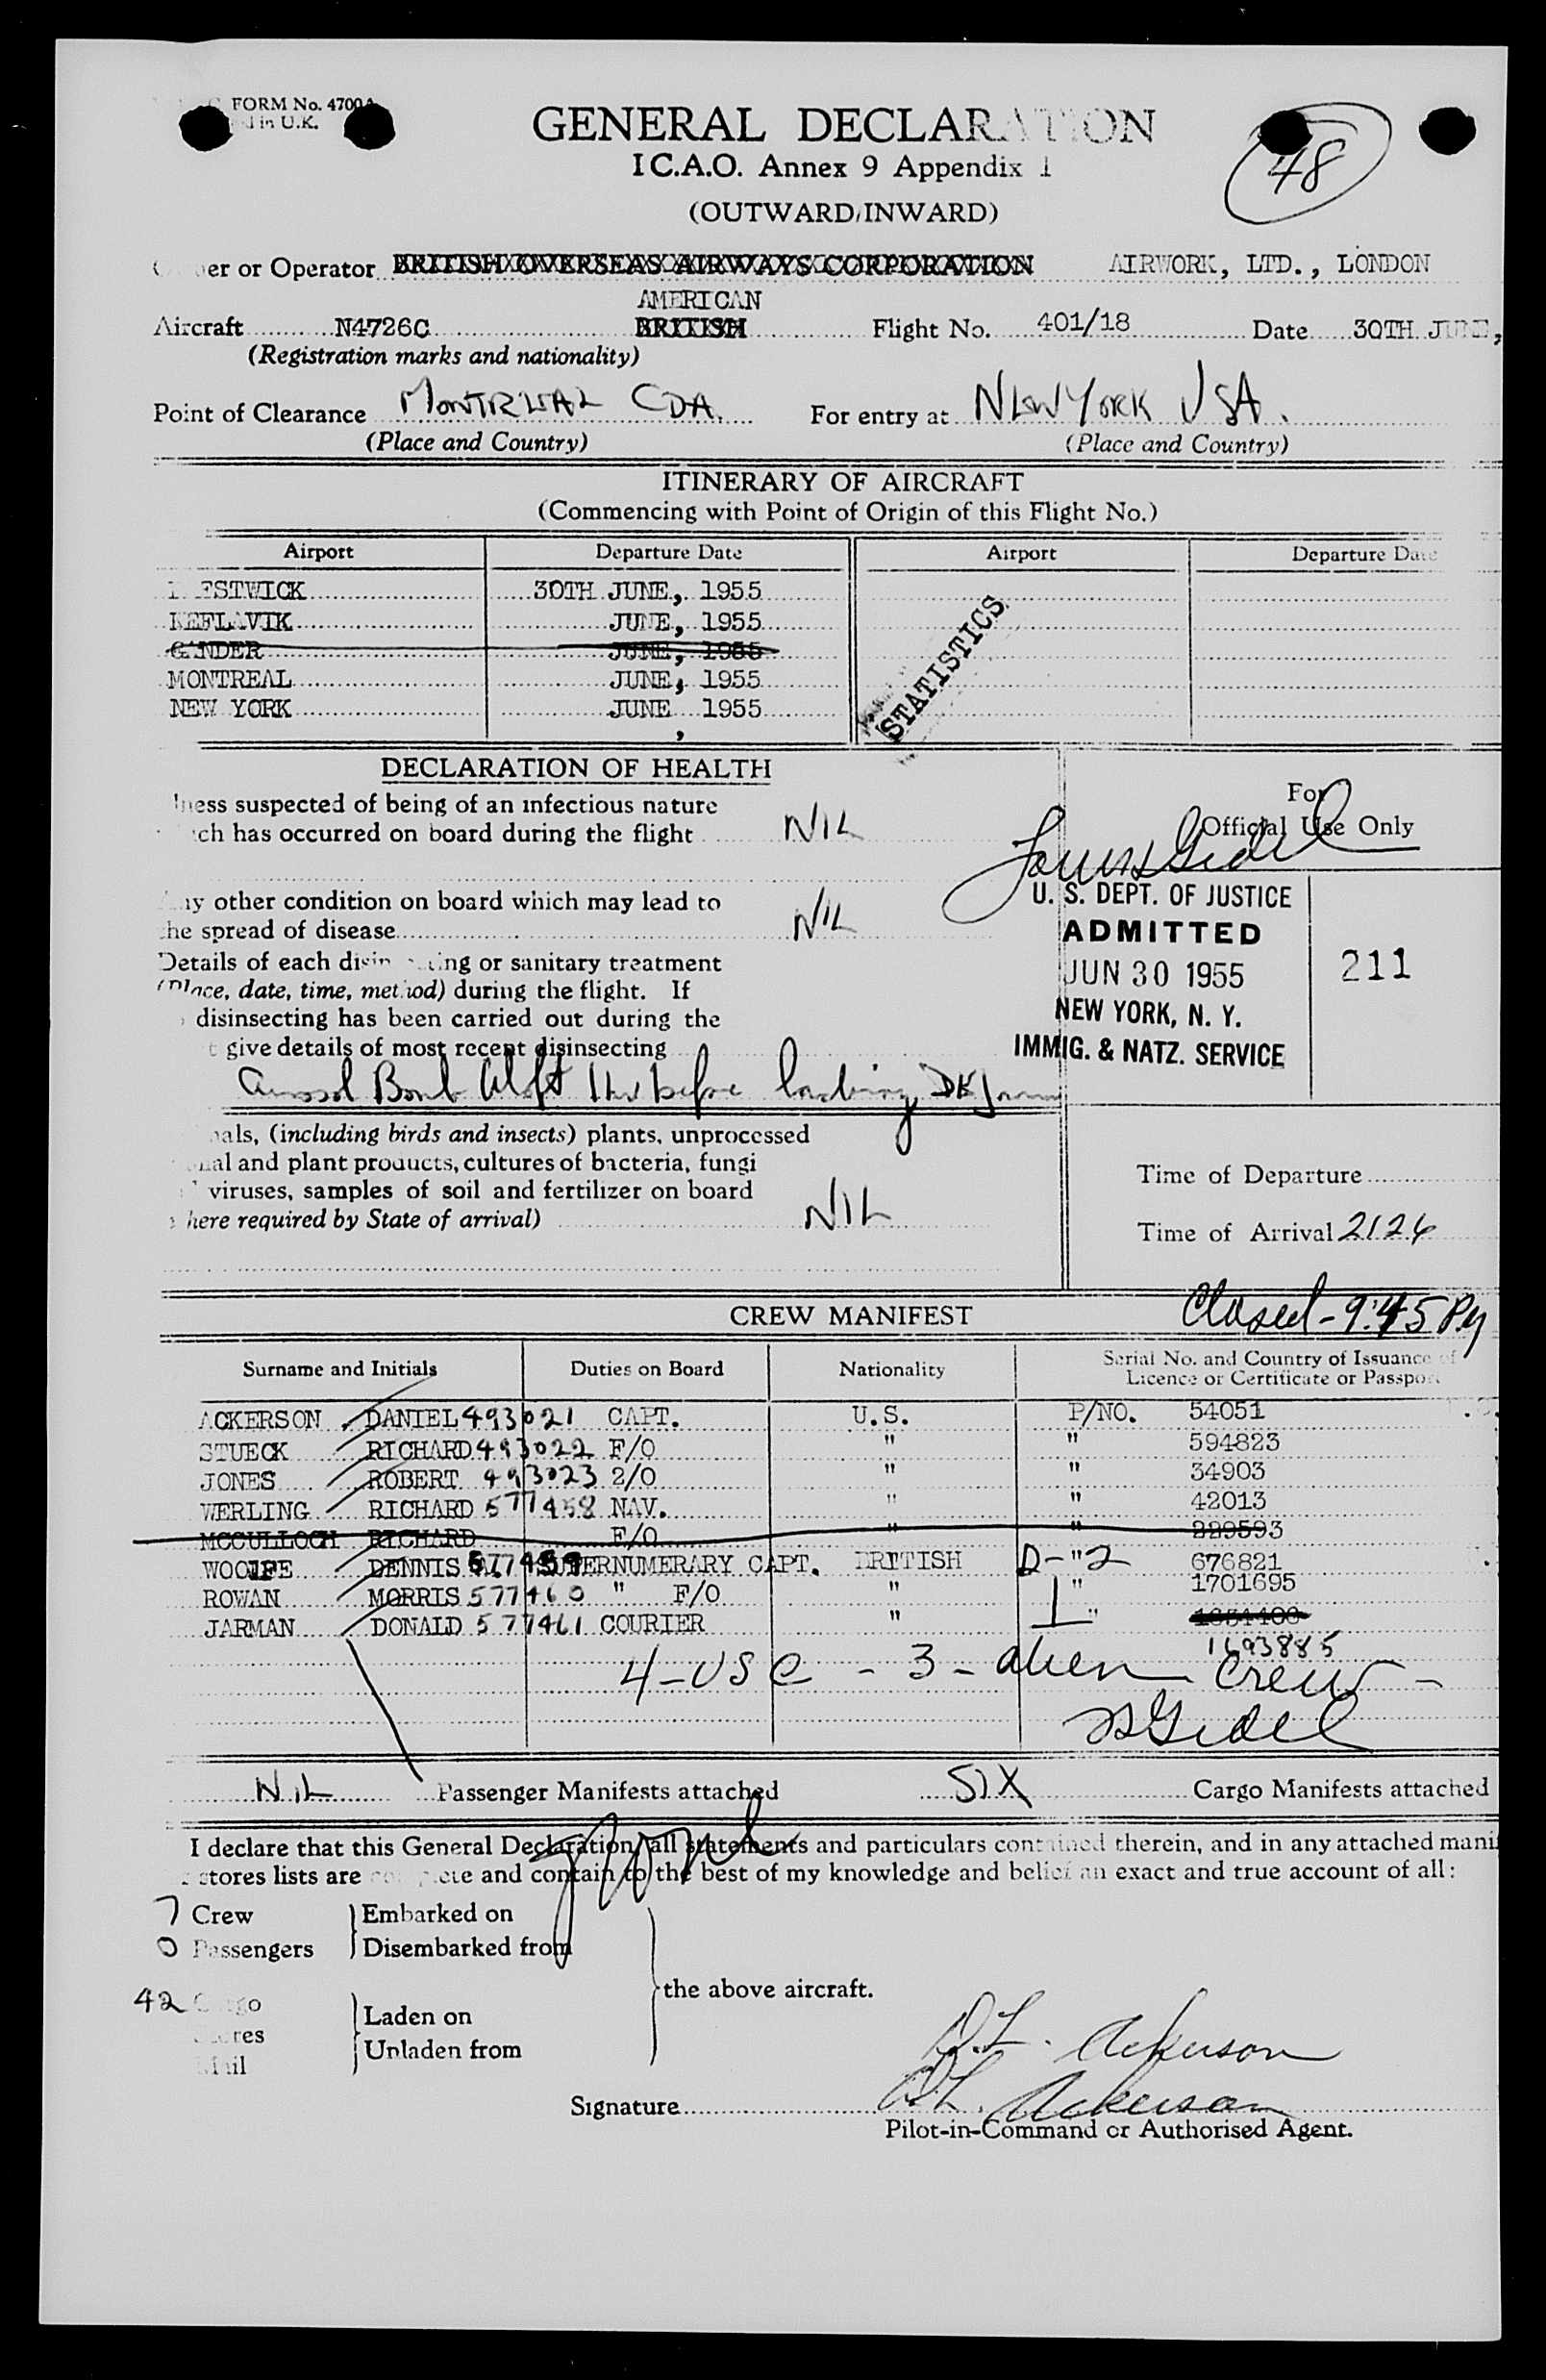 FORM No. 4700A
in U.K.
GENERAL DECLARATION
I C.A.O. Annex 9 Appendix 1
48
(OUTWARD/INWARD)
er or Operator BRITISH OVERSEAS AIRWAYS CORPORATION AIRWORK, LTD., LONDON
AMERICAN
Aircraft N4726C BRITISH Flight No. 401/18 Date 30TH JUNE,
(Registration marks and nationality)
Point of Clearance MONTREAL CDA. For entry at NEW YORK USA.
(Place and Country) (Place and Country)
ITINERARY OF AIRCRAFT
(Commencing with Point of Origin of this Flight No.)
Airport Departure Date Airport Departure Date
ESTWICK 30TH JUNE, 1955
KEFLAVIK JUNE, 1955
GANDER JUNE, 1955
MONTREAL JUNE, 1955
NEW YORK JUNE, 1955
STATISTICS
DECLARATION OF HEALTH
lness suspected of being of an infectious nature
ch has occurred on board during the flight NIL
For
Official Use Only
ny other condition on board which may lead to
the spread of disease NIL
Details of each disin ting or sanitary treatment
(Place, date, time, method) during the flight. If
disinsecting has been carried out during the
t give details of most recent disinsecting
Aerosol Bomb Aloft 1 hr before landing
U. S. DEPT. OF JUSTICE
ADMITTED
JUN 30 1955
NEW YORK, N. Y.
IMMIG. & NATZ. SERVICE
211
als, (including birds and insects) plants, unprocessed
nal and plant products, cultures of bacteria, fungi
viruses, samples of soil and fertilizer on board
here required by State of arrival) NIL
Time of Departure
Time of Arrival 2126
Closed - 9:45 PM
CREW MANIFEST
Surname and Initials Duties on Board Nationality Serial No. and Country of Issuance of
Licence or Certificate or Passport
ACKERSON DANIEL 493021 CAPT. U.S. P/NO. 54051
STUECK RICHARD 493022 F/O " " 594823
JONES ROBERT 493023 2/O " " 34903
WERLING RICHARD 577458 NAV. " " 42013
MCCULLOCH RICHARD F/O " " 229593
WOOLFE DENNIS 577459 SUPERNUMERARY CAPT. BRITISH D-"2 676821
ROWAN MORRIS 577460 " F/O " " 1701695
JARMAN DONALD 577461 COURIER " "
1693885
4-USC - 3-alien crew-
Gidel
NIL Passenger Manifests attached SIX Cargo Manifests attached
I declare that this General Declaration, all statements and particulars contained therein, and in any attached mani
stores lists are complete and contain to the best of my knowledge and belief an exact and true account of all:
7 Crew Embarked on
0 Passengers Disembarked from
the above aircraft.
42 Cargo Laden on
Stores
Mail Unladen from
D.L. Ackerson
Signature D.L. Ackerson
Pilot-in-Command or Authorised Agent.